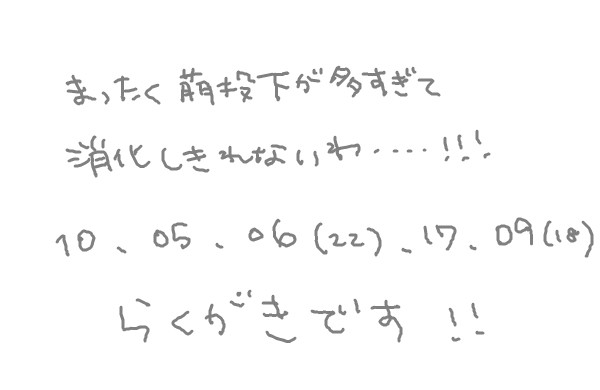 まったく萌投下が多すぎて
消化しきれないわ‥‥!!!
10、05、06(22)、17、09(18)
らくがきです!!